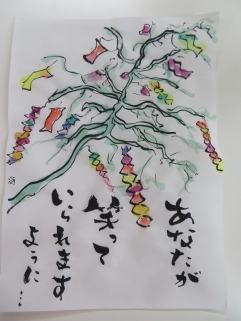 あなたが
笑って
いられます
ように…